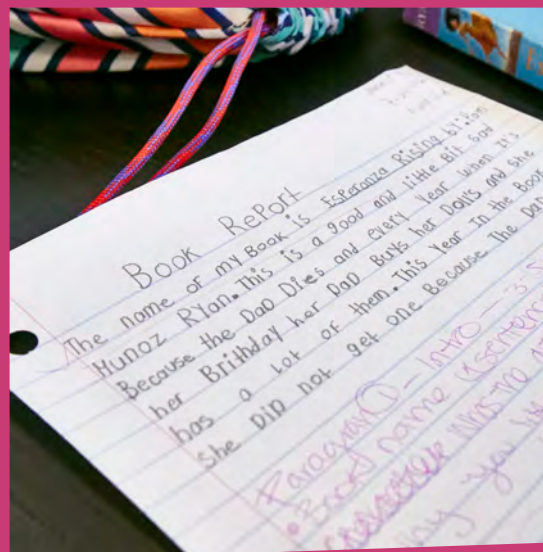 Book Report
The name of my Book is Esperanza Rising by: Pam
Munoz Ryan. This is a good and little Bit sad
Because the DaD Dies and every year when it's
her Brithday her DaD Buys her Doll's and she
has a lot of them. This year In the Book
She DiD not get one Because the DaD
Paragraph 1 - Intro - 3 s
• Book name (sentenc
was the
why you li